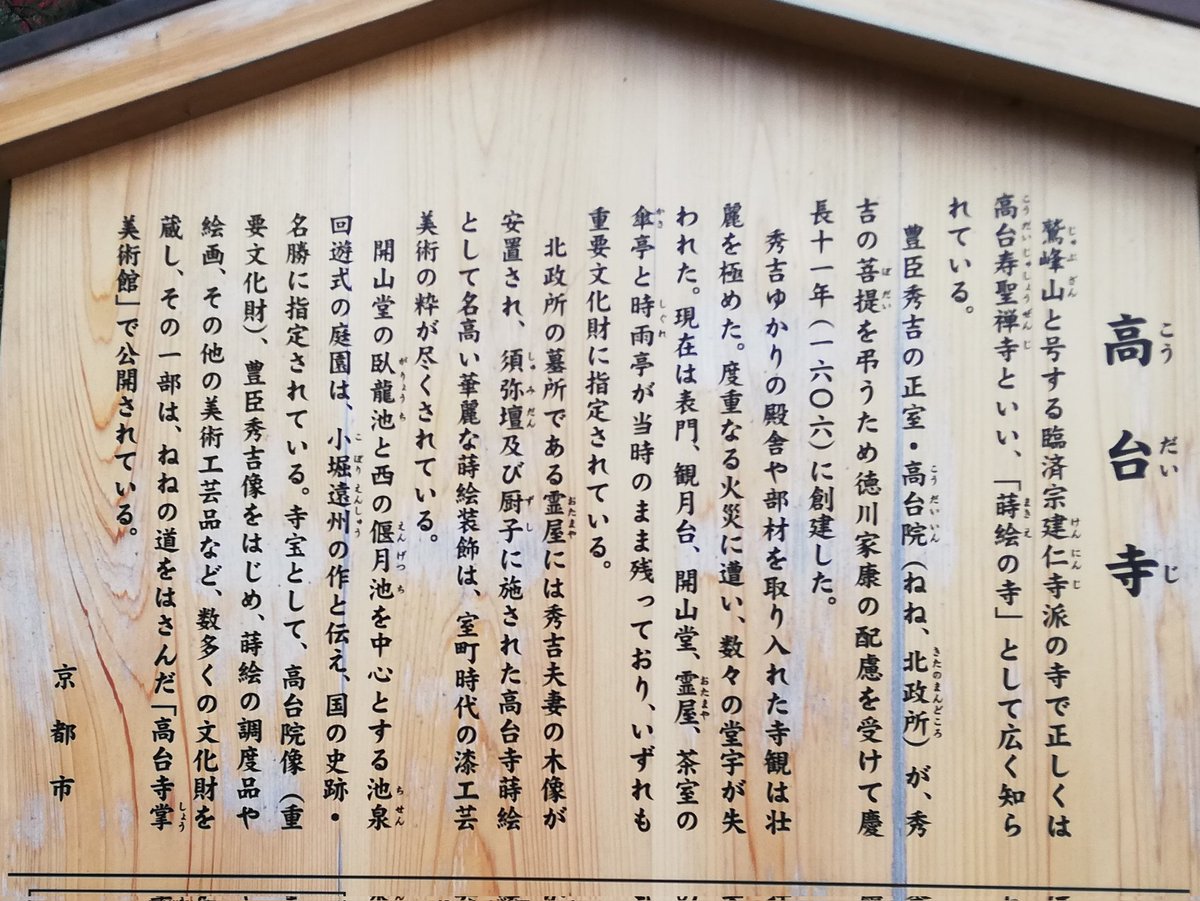 高台寺
鷲峰山と号する臨済宗建仁寺派の寺で正しくは
高台寿聖禅寺といい、「蒔絵の寺」として広く知ら
れている。
豊臣秀吉の正室・高台院（ねね、北政所）が、秀
吉の菩提を弔うため徳川家康の配慮を受けて慶
長十一年（一六〇六）に創建した。
秀吉ゆかりの殿舎や部材を取り入れた寺観は壮
麗を極めた。度重なる火災に遭い、数々の堂宇が失
われた。現在は表門、観月台、開山堂、霊屋、茶室の
傘亭と時雨亭が当時のまま残っており、いずれも
重要文化財に指定されている。
北政所の墓所である霊屋には秀吉夫妻の木像が
安置され、須弥壇及び厨子に施された高台寺蒔絵
として名高い華麗な蒔絵装飾は、室町時代の漆工芸
美術の粋が尽くされている。
開山堂の臥龍池と西の偃月池を中心とする池泉
回遊式の庭園は、小堀遠州の作と伝え、国の史跡・
名勝に指定されている。寺宝として、高台院像（重
要文化財）、豊臣秀吉像をはじめ、蒔絵の調度品や
絵画、その他の美術工芸品など、数多くの文化財を
蔵し、その一部は、ねねの道をはさんだ「高台寺掌
美術館」で公開されている。
京都市